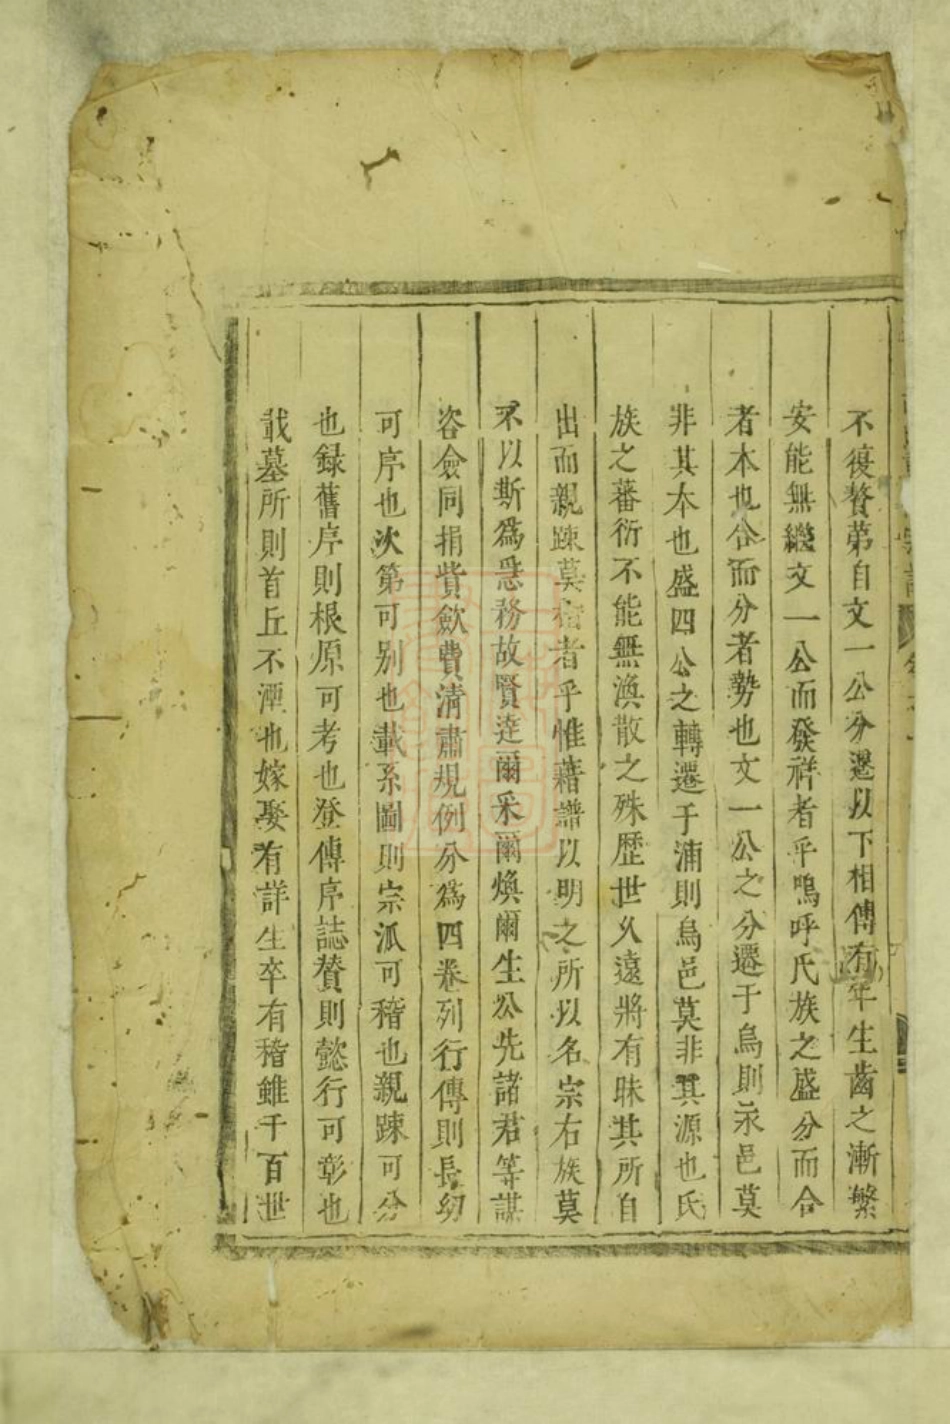 不復贅第自文一公分遷以下相傳有年生齒之漸繁
安能無繼文一公而發祥者乎嗚呼氏族之盛分而合
者本也合而分者勢也文一公之分遷于烏則永邑莫
非其本也盛四公之轉遷于浦則烏邑莫非其源也氏
族之蕃衍不能無渙散之殊歷世久遠將有昧其所自
出而親踈莫稽者乎惟藉譜以明之所以名宗右族莫
不以斯爲急務故賢達爾采爾煥爾生公先諸君等謀
咨僉同捐貲歛費清肅規例分爲四卷列行傳則長幼
可序也次第可别也載系圖則宗派可稽也親踈可分
也録舊序則根原可考也登傳序誌賛則懿行可彰也
載墓所則首丘不湮也嫁娶有詳生卒有稽雖千百世